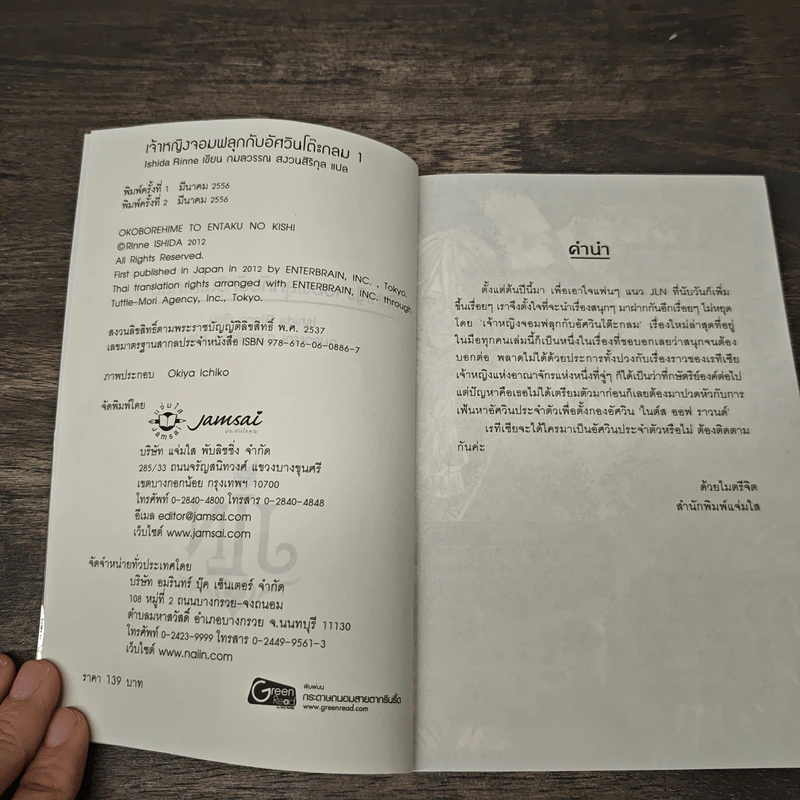 เจ้าหญิงจอมฟลุกกับอัศวินโต๊ะกลม 1
Ishida Rinne เขียน กมลวรรณ สงวนสิริกุล แปล
พิมพ์ครั้งที่ 1 มีนาคม 2556
พิมพ์ครั้งที่ 2 มีนาคม 2556
OKOBOREHIME TO ENTAKU NO KISHI
©Rinne ISHIDA 2012
All Rights Reserved.
First published in Japan in 2012 by ENTERBRAIN, INC. , Tokyo.
Thai translation rights arranged with ENTERBRAIN, INC. through
Tuttle-Mori Agency, Inc., Tokyo.
สงวนลิขสิทธิ์ตามพระราชบัญญัติลิขสิทธิ์ พ.ศ. 2537
เลขมาตรฐานสากลประจำหนังสือ ISBN 978-616-06-0886-7
ภาพประกอบ Okiya Ichiko
จัดพิมพ์โดย
แจ่มใส
jamsai
jamsai
บริษัท แจ่มใส พับลิชชิ่ง จำกัด
285/33 ถนนจรัญสนิทวงศ์ แขวงบางขุนศรี
เขตบางกอกน้อย กรุงเทพฯ 10700
โทรศัพท์ 0-2840-4800 โทรสาร 0-2840-4848
อีเมล editor@jamsai.com
เว็บไซต์ www.jamsai.com
จัดจำหน่ายทั่วประเทศโดย
บริษัท อมรินทร์ บุ๊ค เซ็นเตอร์ จำกัด
108 หมู่ที่ 2 ถนนบางกรวย-จงถนอม
ตำบลมหาสวัสดิ์ อำเภอบางกรวย จ.นนทบุรี 11130
โทรศัพท์ 0-2423-9999 โทรสาร 0-2449-9561-3
เว็บไซต์ www.naiin.com
ราคา 139 บาท
Green Read
พิมพ์บน
กระดาษถนอมสายตากรีนรี้ด
www.greenread.com
คำนำ
ตั้งแต่ต้นปีนี้มา เพื่อเอาใจแฟนๆ แนว JLN ที่นับวันก็เพิ่ม
ขึ้นเรื่อยๆ เราจึงตั้งใจที่จะนำเรื่องสนุกๆ มาฝากกันอีกเรื่อยๆ ไม่หยุด
โดย 'เจ้าหญิงจอมฟลุกกับอัศวินโต๊ะกลม' เรื่องใหม่ล่าสุดที่อยู่
ในมือทุกคนเล่มนี้ก็เป็นหนึ่งในเรื่องที่ขอบอกเลยว่าสนุกจนต้อง
บอกต่อ พลาดไม่ได้ด้วยประการทั้งปวงกับเรื่องราวของเรทีเซีย
เจ้าหญิงแห่งอาณาจักรแห่งหนึ่งที่จู่ๆ ก็ได้เป็นว่าที่กษัตริย์องค์ต่อไป
แต่ปัญหาคือเธอไม่ได้เตรียมตัวมาก่อนก็เลยต้องมาปวดหัวกับการ
เฟ้นหาอัศวินประจำตัวเพื่อตั้งกองอัศวิน 'ไนต์ส ออฟ ราวนด์'
เรทีเซียจะได้ใครมาเป็นอัศวินประจำตัวหรือไม่ ต้องติดตาม
กันค่ะ
ด้วยไมตรีจิต
สำนักพิมพ์แจ่มใส